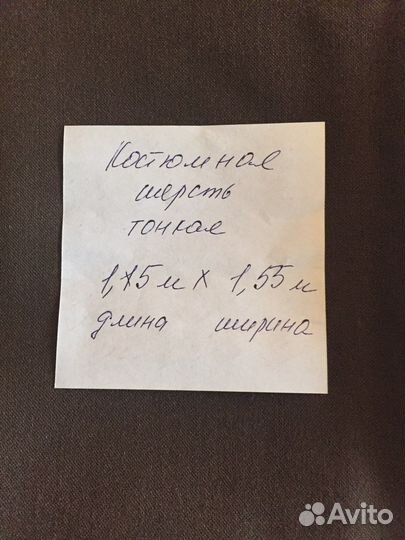 Костюмная
шерсть
тонкая
1,15 м х 1,55 м
длина ширина
Avito